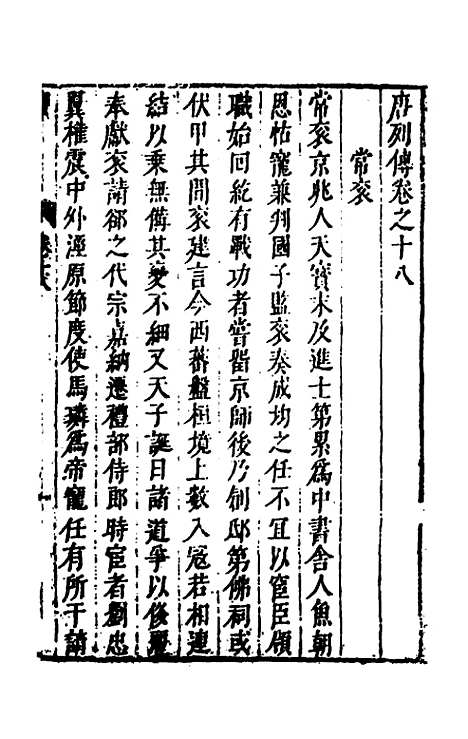 唐列傳卷之十八
常袞
常袞京兆人天寶末及進士第累爲中書舍人魚朝
恩怙寵兼判國子監袞奏成均之任不宜以宦臣領
職始回紇有戰功者嘗留京師後乃創邸第佛祠或
伏甲其間袞建言今西蕃盤桓境上數入寇若相連
結以乘無備其變不細又天子誕日諸道爭以侈麗
奉獻袞請郤之代宗嘉納遷禮部侍郎時宦者劉忠
翼權震中外涇原節度使馬璘爲帝寵任有所干請